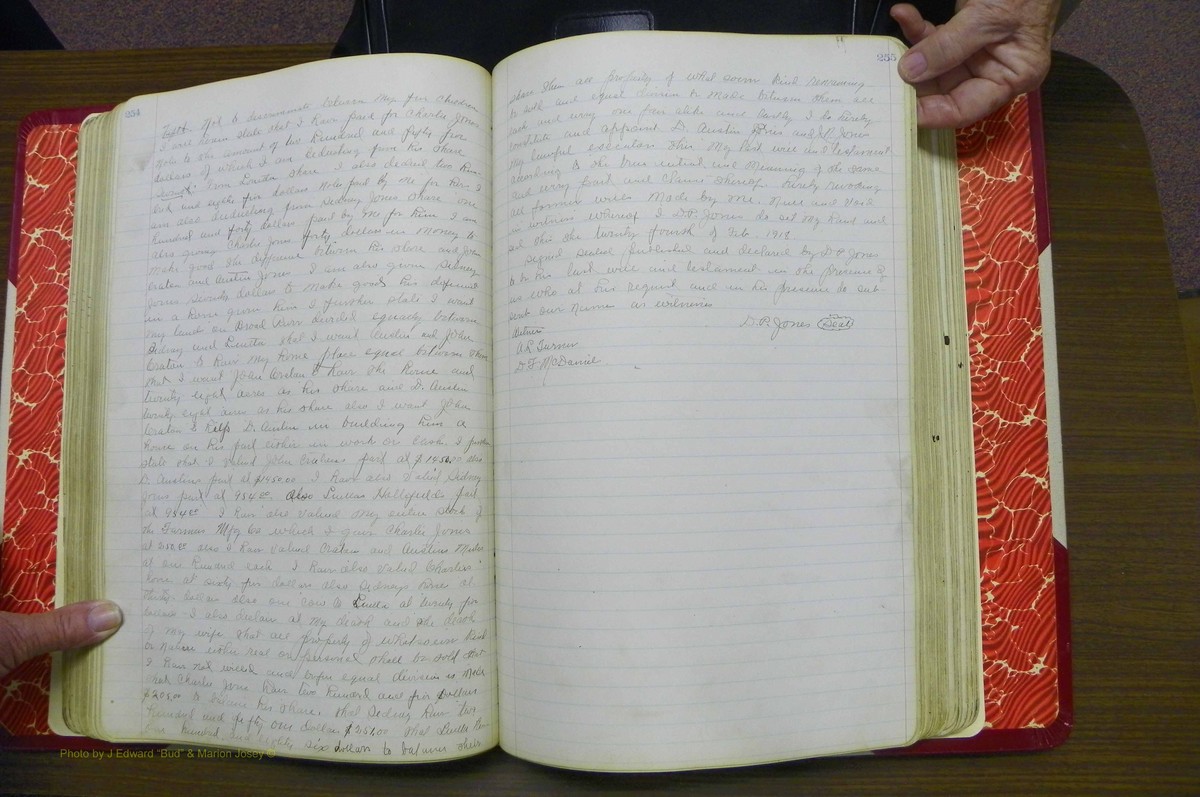 254
Eight. Not to discriminate between my five children
I will again state that I have paid for Charles Jones
note to the amount of two hundred and fifty five
dollars of which I am deducting from his share
from Linetta share I also deduct two hun-
dred and eighty five dollars note paid by me for her I
am also deducting from Sidney Jones share one
hundred and forty dollars paid by me for him I am
also giving Charles Jones forty dollars in money to
make good the difference between his share and John
eratan and Austin Jones. I am also given Sidney
Jones seventy dollars to make good his different
in a horse given him I further state I want
my land on Broad Run divided equally between
Sidney and Linetta shal I want Austin and John
Cratan to have my home place equal between them
that I want John Cratan to have the house and
twenty eight acres as his share and D. Austin
twenty eight acres as his share also I want John
Cratan to help D. Austin in building him a
house on his part either in work or cash. I further
state that I valued John Cratans part at $1450.00 also
D. Austins part at $1450.00 I have also valued Sidney
Jones part at 984.00 Also Linettas part
at 984.00 I have also valued my entire stock of
the Farmers Mfg Co which I give Charlie Jones
at 250.00 also I have valued Cratan and Austins Mules
at one hundred each I have also valued Charlies
horse at sixty five dollars also Sidneys horse at
thirty dollars also one cow to Linetta at twenty five
I also declare at my death and the death
of my wife that all property of whatsoever kind
or nature either real or personal shall be sold that
I have not willed and before equal division is made
that Charles Jones have two hundred and five dollars
$205.00 to balance his share. that Sidney have two
hundred and fifty one dollars $251.00 that Linetta have
one hundred and eighty six dollars to balance their
Photo by J Edward "Bud" & Marion Josey ©
255
share then all property of what soever kind remaining
to sell and equal division to made between them all
each and every one fair alike and lastly I do hereby
constitute and appoint D. Austin Jones and Jones
my lawful executors this my last will and testament
according to the true intent and meaning of the same
and every part and clause thereof hereby revoking
all former wills made by me. Null and void
in witness whereof I D.P. Jones do set my hand and
seal this the twenty fourth of Feb. 1918.
Signed sealed published and declared by D P Jones
to be his last will and testament in the presence of
us who at his request and in his presence do sub-
scribe our names as witnesses
D.P. Jones (Seal)
Witness
A L Turner
D F McDaniel